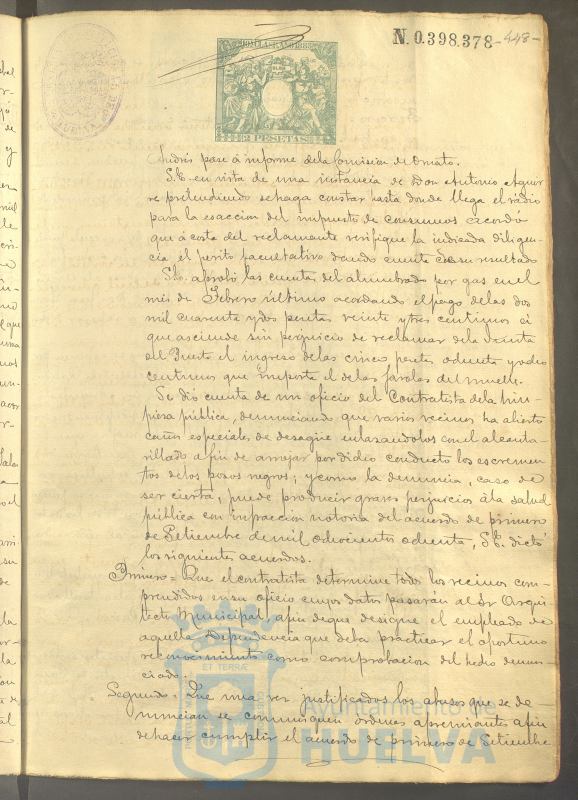 N. 0.398.378 - 448 -
2 PESETAS
Andrés pase á informe de la Comision de Ornato.
S.E. en vista de una instancia de Don Antonio Aguir
re pretendiendo se haga constar hasta donde llega el rádio
para la esaccion del impuesto de consumos acordó
que á costa del reclamante verifique la indicada diligen
cia el perito facultativo dando cuenta de su resultado
S.E. aprobó las cuentas del alumbrado por gas en el
mes de Febrero último acordando el pago de las dos
mil cuarenta y dos pesetas veinte y tres centimos á
que asciende sin perjuicio de reclamar de la Junta
del Puerto el ingreso de las cinco pesetas ochenta y ocho
centimos que importa el de las farolas del muelle.
Se dió cuenta de un oficio del Contratista de la lim
pieza pública, denunciando que varios vecinos ha abierto
caños especiales de desagüe enlasandolos con el alcanta-
rillado a fin de arrojar por dicho conducto los escremen
tos de los posos negros; y como la denuncia, caso de
ser cierta, puede producir graves perjuicios á la salud
pública con infraccion notoria del acuerdo de primero
de Setiembre de mil ochocientos ochenta, S.E. dictó
los siguientes acuerdos.
Primero = Que el contratista determine todos los vecinos com-
prendidos en su oficio cuyos datos pasarán al Sr Arqui
tecto Municipal, a fin de que designe el empleado de
aquella Dependencia que deba practicar el oportuno
reconocimiento como comprobacion del hecho denun-
ciado.
Segundo = Que una vez justificados los abusos que se de-
nuncian se comuniquen ordenes apremiantes a fin
de hacer cumplir el acuerdo de primero de Setiembre
Ayuntamiento de
HUELVA